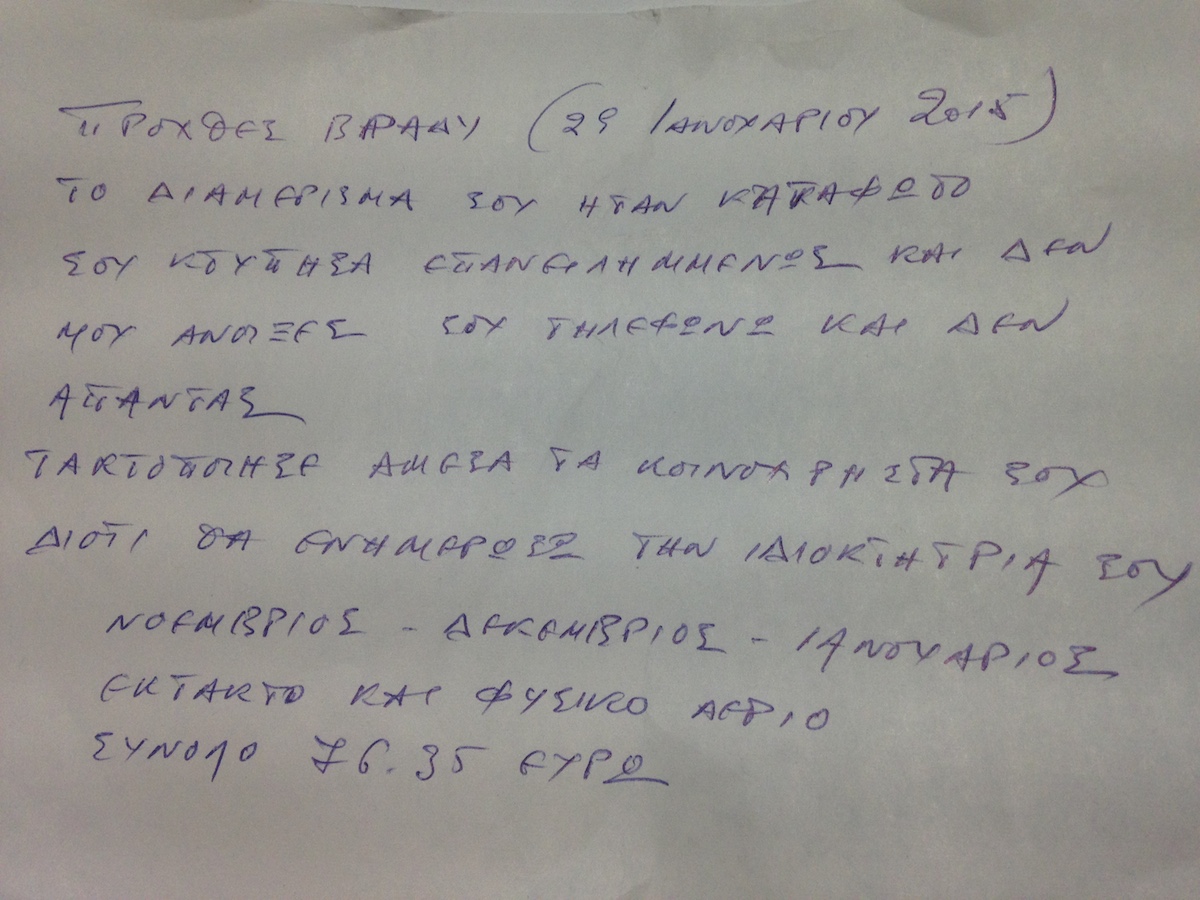 ΠΡΟΧΘΕΣ ΒΡΑΔΥ (29 ΙΑΝΟΥΑΡΙΟΥ 2015)
ΤΟ ΔΙΑΜΕΡΙΣΜΑ ΣΟΥ ΗΤΑΝ ΚΑΤΑΦΩΤΟ
ΣΟΥ ΚΤΥΠΗΣΑ ΕΠΑΝΕΙΛΗΜΜΕΝΩΣ ΚΑΙ ΔΕΝ
ΜΟΥ ΑΝΟΙΞΕΣ ΣΟΥ ΤΗΛΕΦΩΝΩ ΚΑΙ ΔΕΝ
ΑΠΑΝΤΑΣ
ΤΑΚΤΟΠΟΙΗΣΕ ΑΜΕΣΑ ΤΑ ΚΟΙΝΟΧΡΗΣΤΑ ΣΟΥ
ΔΙΟΤΙ ΘΑ ΕΝΗΜΕΡΩΣΩ ΤΗΝ ΙΔΙΟΚΤΗΤΡΙΑ ΣΟΥ
ΝΟΕΜΒΡΙΟΣ - ΔΕΚΕΜΒΡΙΟΣ - ΙΑΝΟΥΑΡΙΟΣ
ΕΚΤΑΚΤΟ ΚΑΙ ΦΥΣΙΚΟ ΑΕΡΙΟ
ΣΥΝΟΛΟ 76.35 ΕΥΡΩ